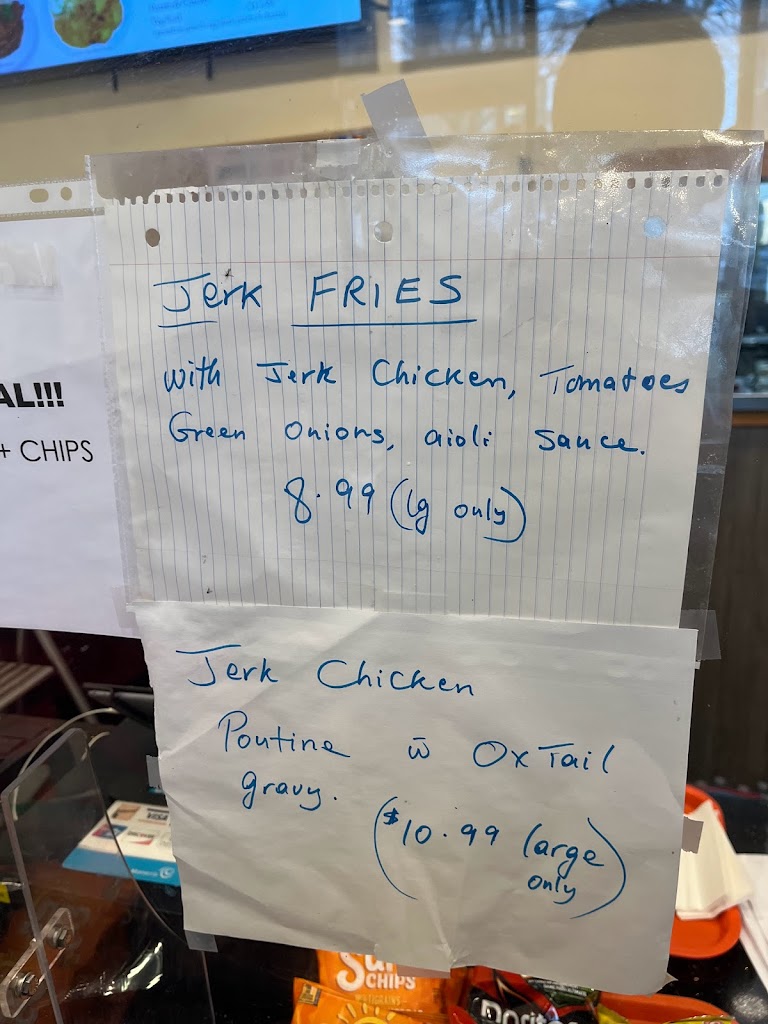 AL!!!
+ CHIPS
Jerk FRIES
with Jerk Chicken, Tomatoes
Green onions, aioli sauce.
8.99 (lg only)
Jerk Chicken
Poutine w̄ OxTail
gravy.
($10.99 large
only)
Sun
CHIPS
MULTIGRAINS
Dorit